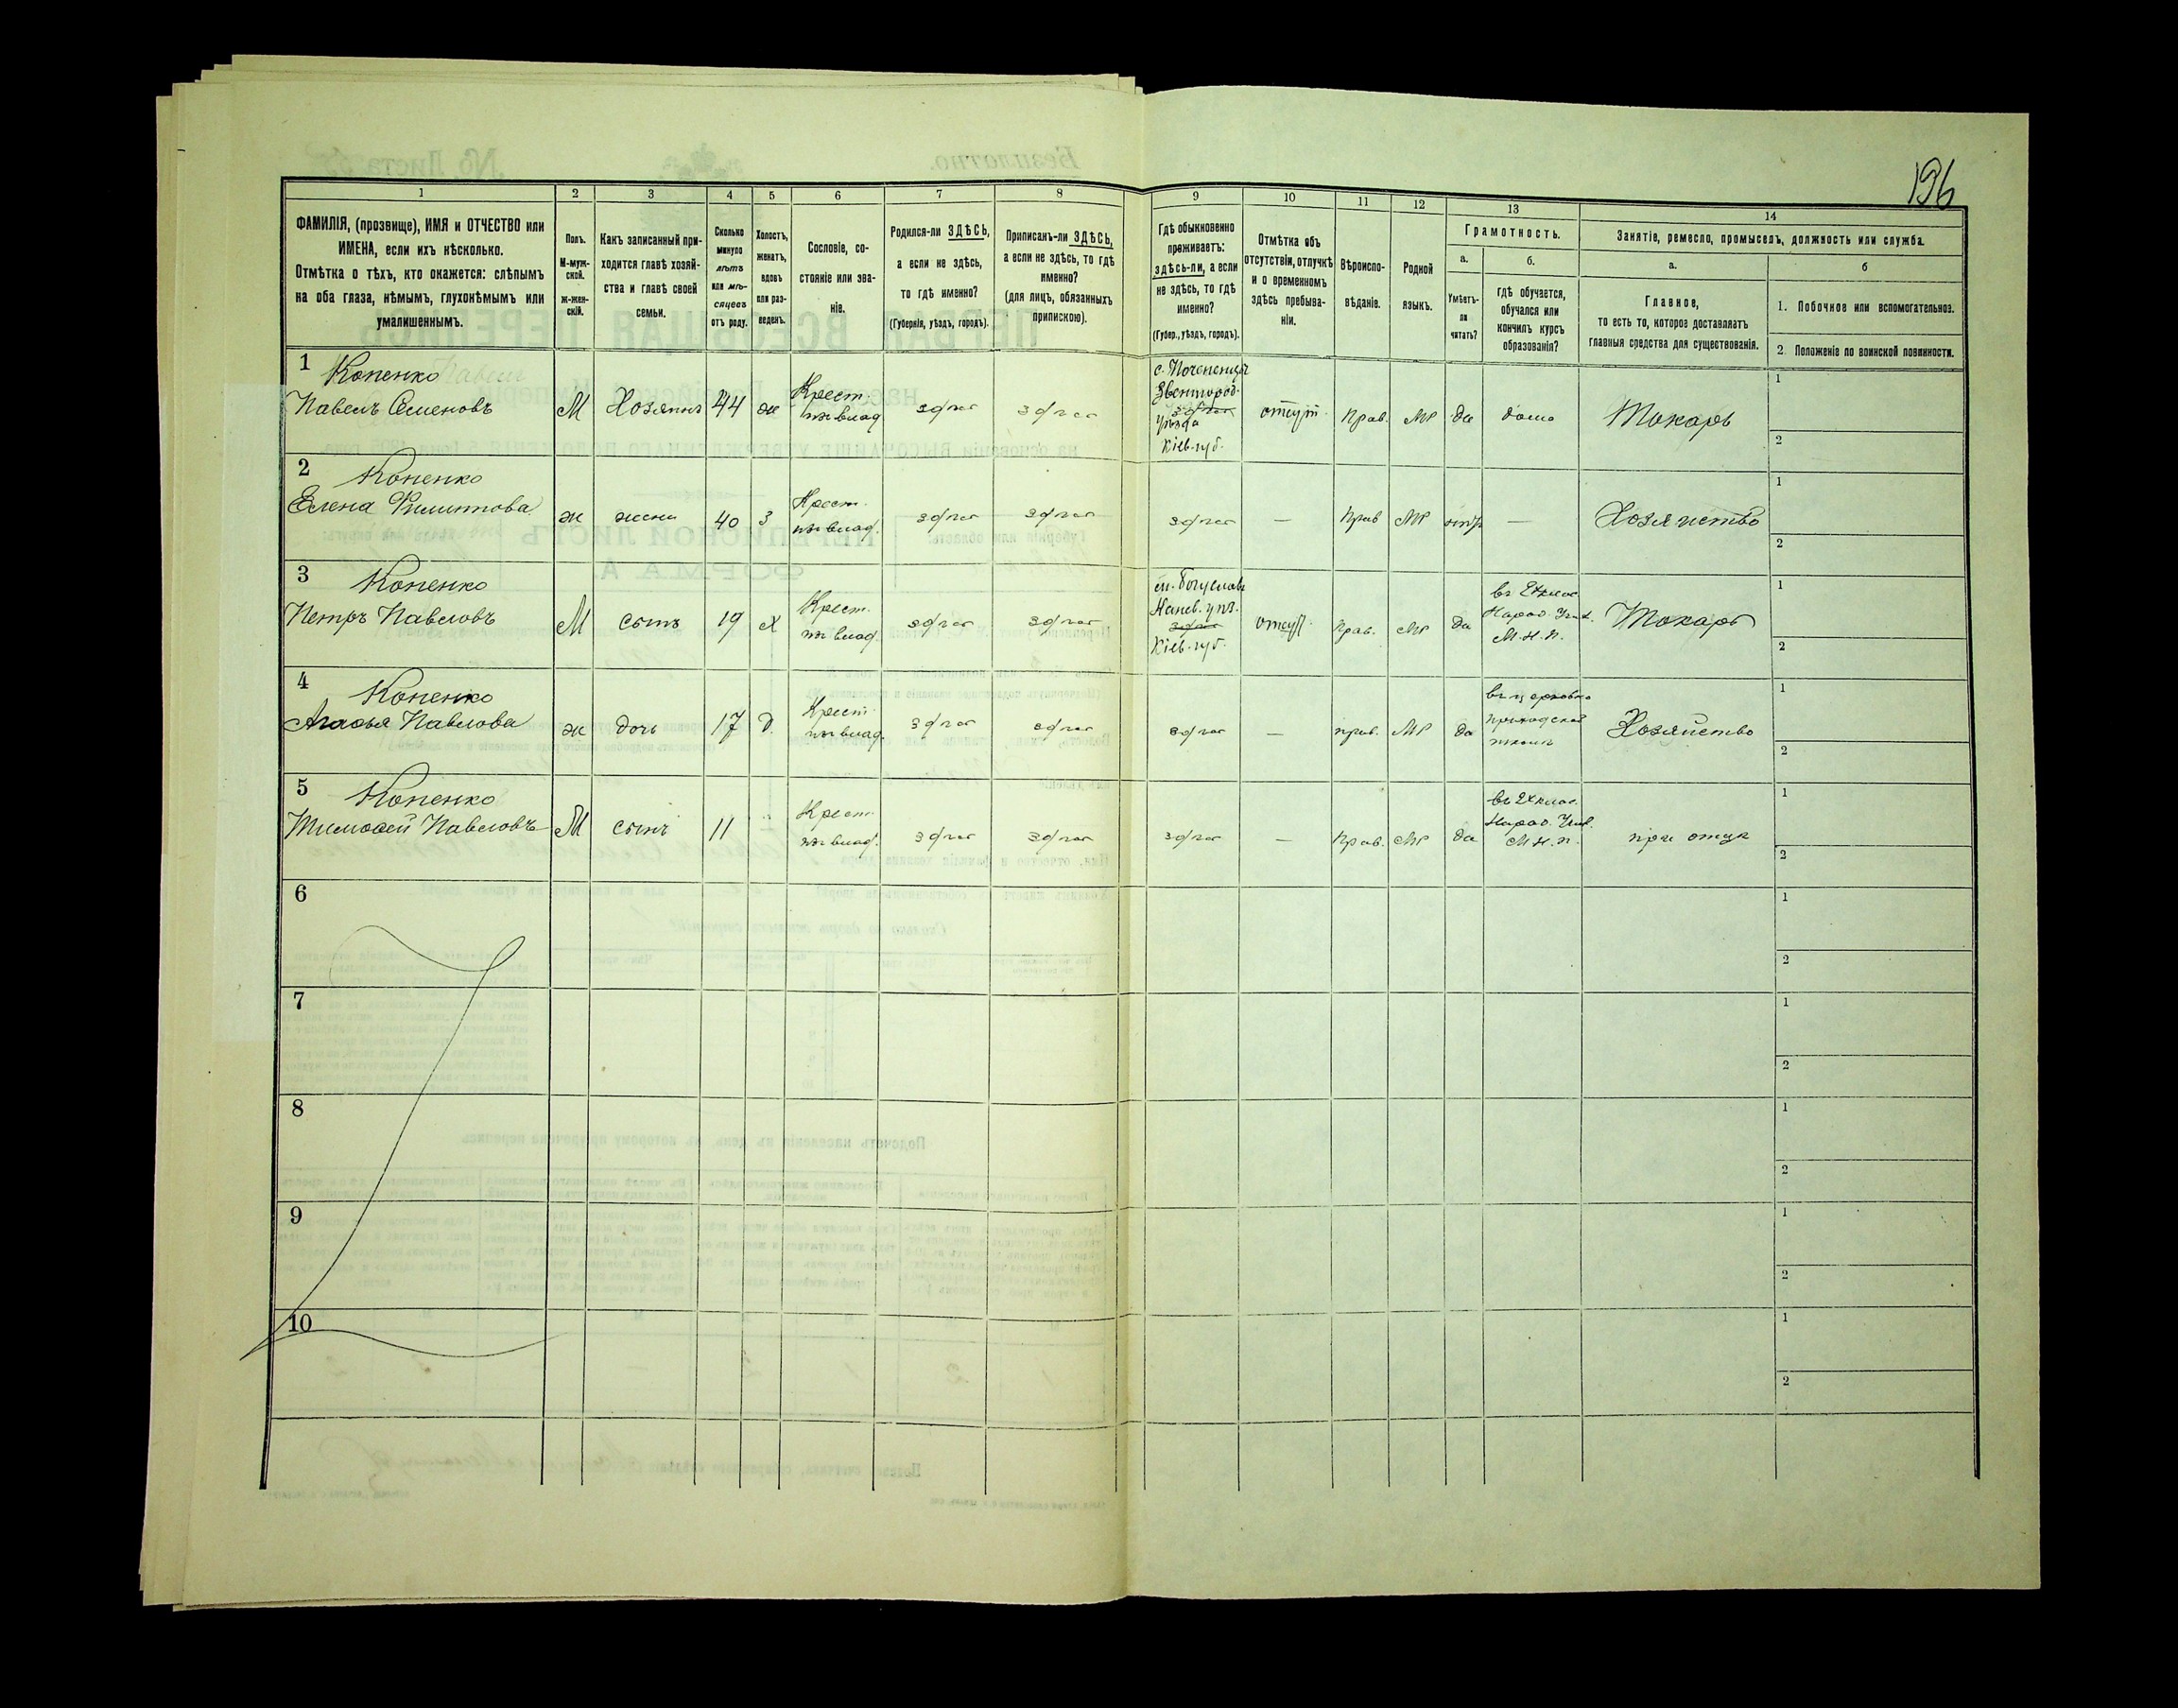 196
1
2
3
4
5
6
7
8
9
10
11
12
13
14
ФАМИЛІЯ, (прозвище), ИМЯ и ОТЧЕСТВО или
ИМЕНА, если ихъ нѣсколько.
Отмѣтка о тѣхъ, кто окажется: слѣпымъ
на оба глаза, нѣмымъ, глухонѣмымъ или
умалишеннымъ.
Полъ.
М-муж-
ской.
ж-жен-
скій.
Какъ записанный при-
ходится главѣ хозяй-
ства и главѣ своей
семьи.
Сколько
минуло
лѣтъ
или мѣ-
сяцевъ
отъ роду.
Холостъ,
женатъ,
вдовъ
или раз-
веденъ.
Сословіе, со-
стояніе или зва-
ніе.
Родился-ли ЗДѢСЬ,
а если не здѣсь,
то гдѣ именно?
(Губернія, уѣздъ, городъ).
Приписанъ-ли ЗДѢСЬ,
а если не здѣсь, то гдѣ
именно?
(для лицъ, обязанныхъ
припискою).
Гдѣ обыкновенно
проживаетъ:
здѣсь-ли, а если
не здѣсь, то гдѣ
именно?
(Губер., уѣздъ, городъ).
Отмѣтка объ
отсутствіи, отлучкѣ
и о временномъ
здѣсь пребыва-
ніи.
Вѣроиспо-
вѣданіе.
Родной
языкъ.
Грамотность.
а.
Умѣетъ-
ли
читать?
б.
Гдѣ обучается,
обучался или
кончилъ курсъ
образованія?
Занятіе, ремесло, промыселъ, должность или служба.
а.
Главное,
то есть то, которое доставляетъ
главныя средства для существованія.
б
1. Побочное или вспомогательное.
2. Положеніе по воинской повинности.
1
Копенко
Павелъ Семеновъ
М
Хозяинъ
44
ж
Крест.
изъ влад
здѣсь
здѣсь
Звенигород.
здѣсь
уѣзда
Кіев. губ.
отсут.
Прав.
МР
да
дома
Токарь
1
2
2
Копенко
Елена Филиппова
ж
жена
40
З
Крест.
изъ влад.
здѣсь
здѣсь
здѣсь
—
Прав
МР
—
Хозяйство
1
2
3
Копенко
Петръ Павловъ
М
сынъ
19
Х
Крест.
изъ влад.
здѣсь
здѣсь
м. Богуславъ
Канев. уѣз.
здѣсь
Кіев. губ.
отсут.
Прав.
МР
да
въ 2х клас
Народ. Учил.
М. Н. П.
Токарь
1
2
4
Копенко
Агафья Павлова
ж
дочь
17
Д
Крест.
изъ влад.
здѣсь
здѣсь
здѣсь
—
прав.
МР
да
въ церковно
приходской
школѣ
Хозяйство
1
2
5
Копенко
Тимофей Павловъ
М
сынъ
11
Крест.
изъ влад.
здѣсь
здѣсь
здѣсь
—
Прав.
МР
да
въ 2х клас.
Народ. Учил.
М. Н. П.
при отцѣ
1
2
6
1
2
7
1
2
8
1
2
9
1
2
10
1
2